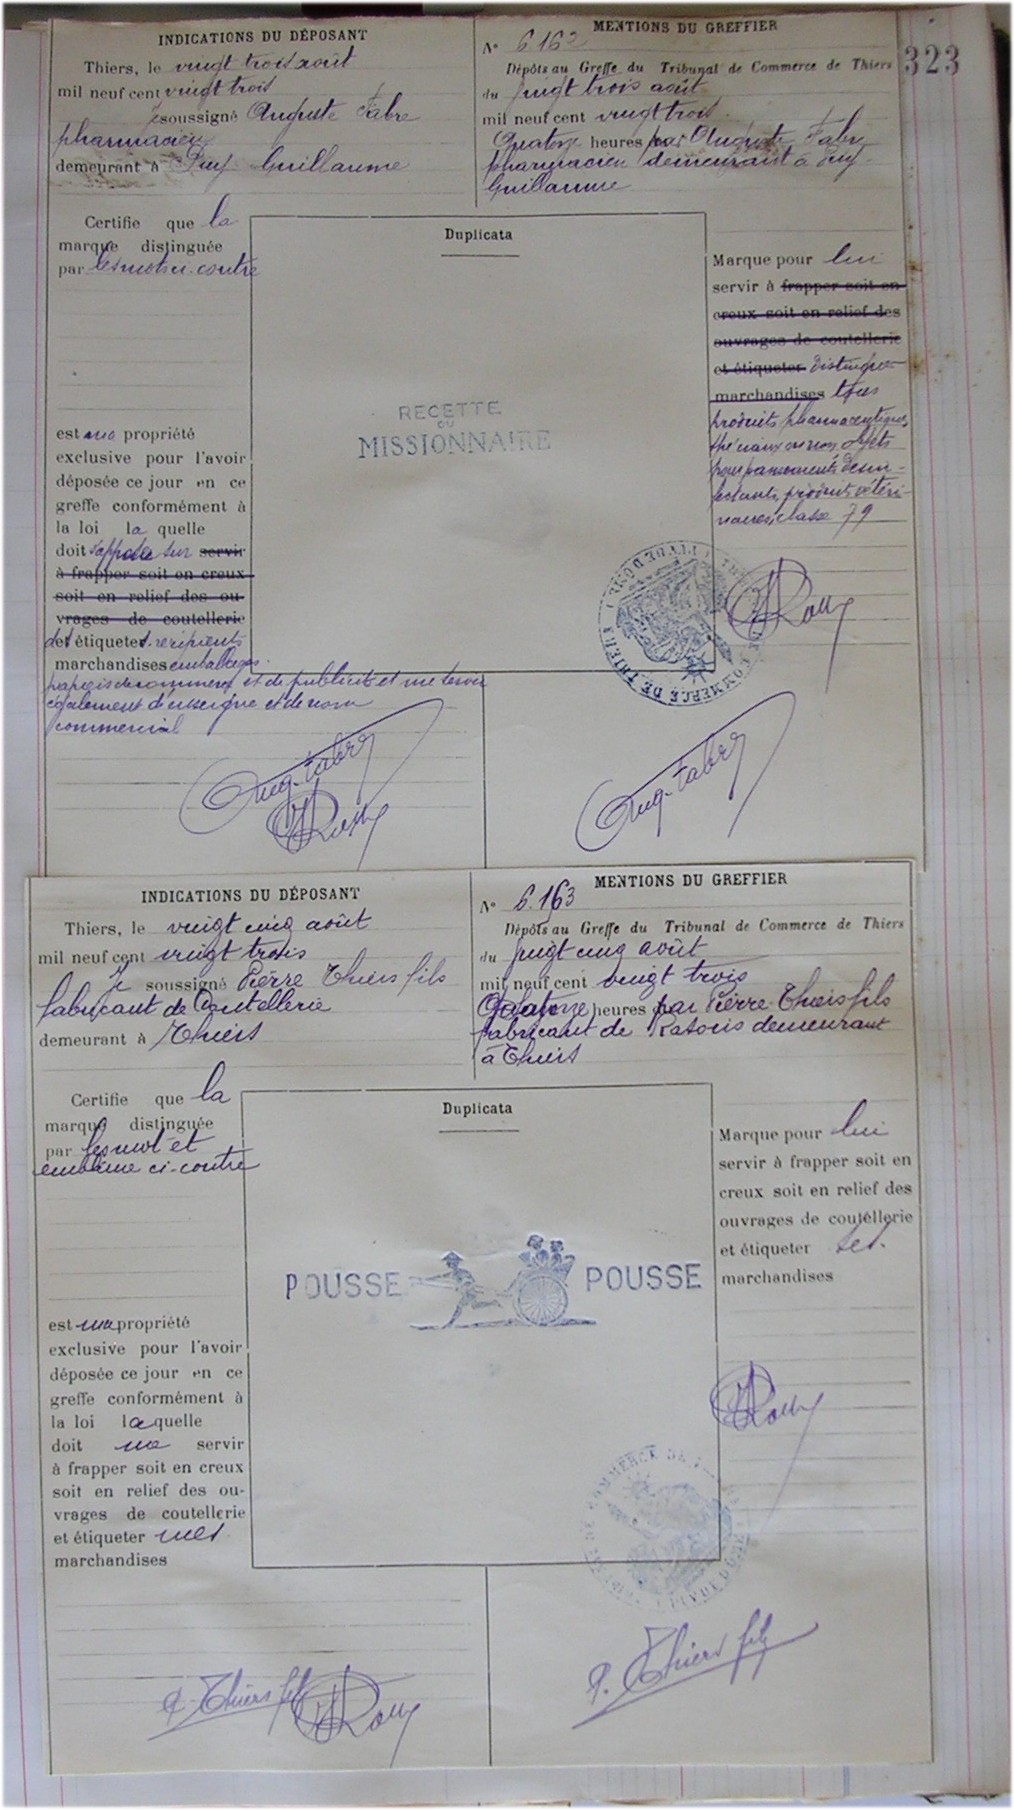 323
INDICATIONS DU DÉPOSANT
Thiers, le vingt trois août
mil neuf cent vingt trois
soussigné Auguste Fabre
pharmacien
demeurant à Puy-Guillaume
MENTIONS DU GREFFIER
N° 6.162
Dépôts au Greffe du Tribunal de Commerce de Thiers
du vingt trois août
mil neuf cent vingt trois
Quatorze heures par Auguste Fabre
pharmacien demeurant à Puy-
Guillaume
Certifie que la
marque distinguée
par les mots ci-contre
est ma propriété
exclusive pour l'avoir
déposée ce jour en ce
greffe conformément à
la loi la quelle
doit s'apposer sur servir
à frapper soit en creux
soit en relief des ou-
vrages de coutellerie
des étiquettes récipients
marchandises emballages
papiers de commerce et de publicité et me servir
également d'enseigne et de nom
commercial
Duplicata
RECETTE
DU
MISSIONNAIRE
Marque pour lui
servir à frapper soit en
creux soit en relief des
ouvrages de coutellerie
et étiqueter distinguer
marchandises tous
produits pharmaceutiques,
spéciaux ou non, objets
pour pansements désin-
fectants, produits vétéri-
naires, classe 79
COMMERCE DE THIERS
Aug. Fabre
Aug. Fabre
INDICATIONS DU DÉPOSANT
Thiers, le vingt cinq août
mil neuf cent vingt trois
Je soussigné Pierre Thiers fils
fabricant de Coutellerie
demeurant à Thiers
MENTIONS DU GREFFIER
N° 6.163
Dépôts au Greffe du Tribunal de Commerce de Thiers
du vingt cinq août
mil neuf cent vingt trois
Quatorze heures par Pierre Thiers fils
fabricant de Rasoirs demeurant
à Thiers
Certifie que la
marque distinguée
par les mot et
emblème ci-contre
est ma propriété
exclusive pour l'avoir
déposée ce jour en ce
greffe conformément à
la loi laquelle
doit me servir
à frapper soit en creux
soit en relief des ou-
vrages de coutellerie
et étiqueter mes
marchandises
Duplicata
POUSSE POUSSE
Marque pour lui
servir à frapper soit en
creux soit en relief des
ouvrages de coutellerie
et étiqueter ses
marchandises
P. Thiers fils
P. Thiers fils